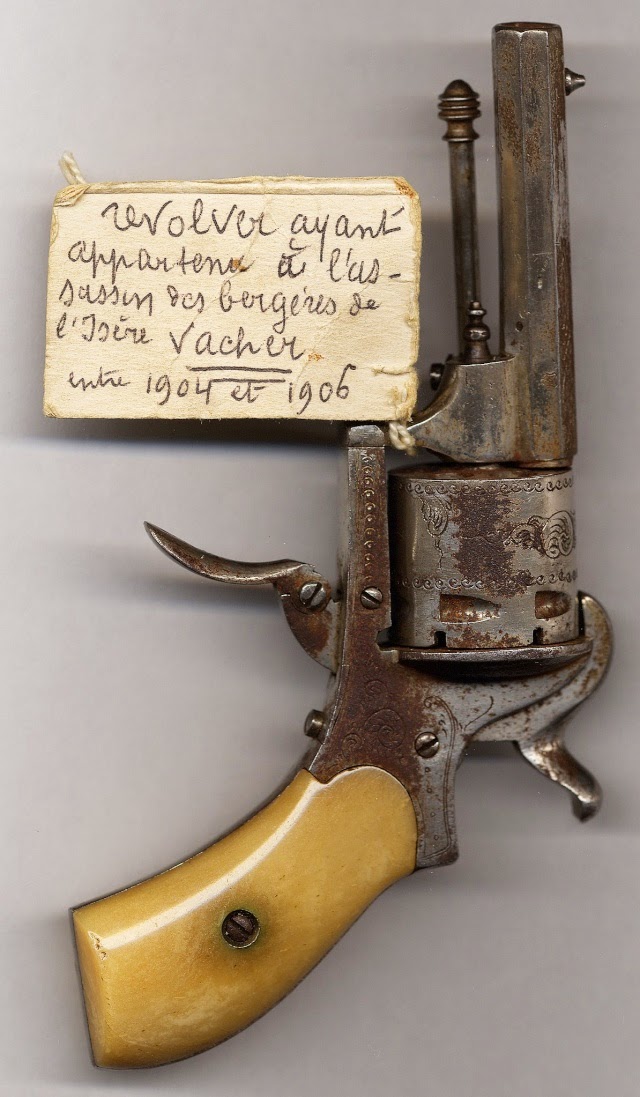 revolver ayant
appartenu à l'as-
sassin des bergères de
l'Isère Vacher
entre 1904 et 1906